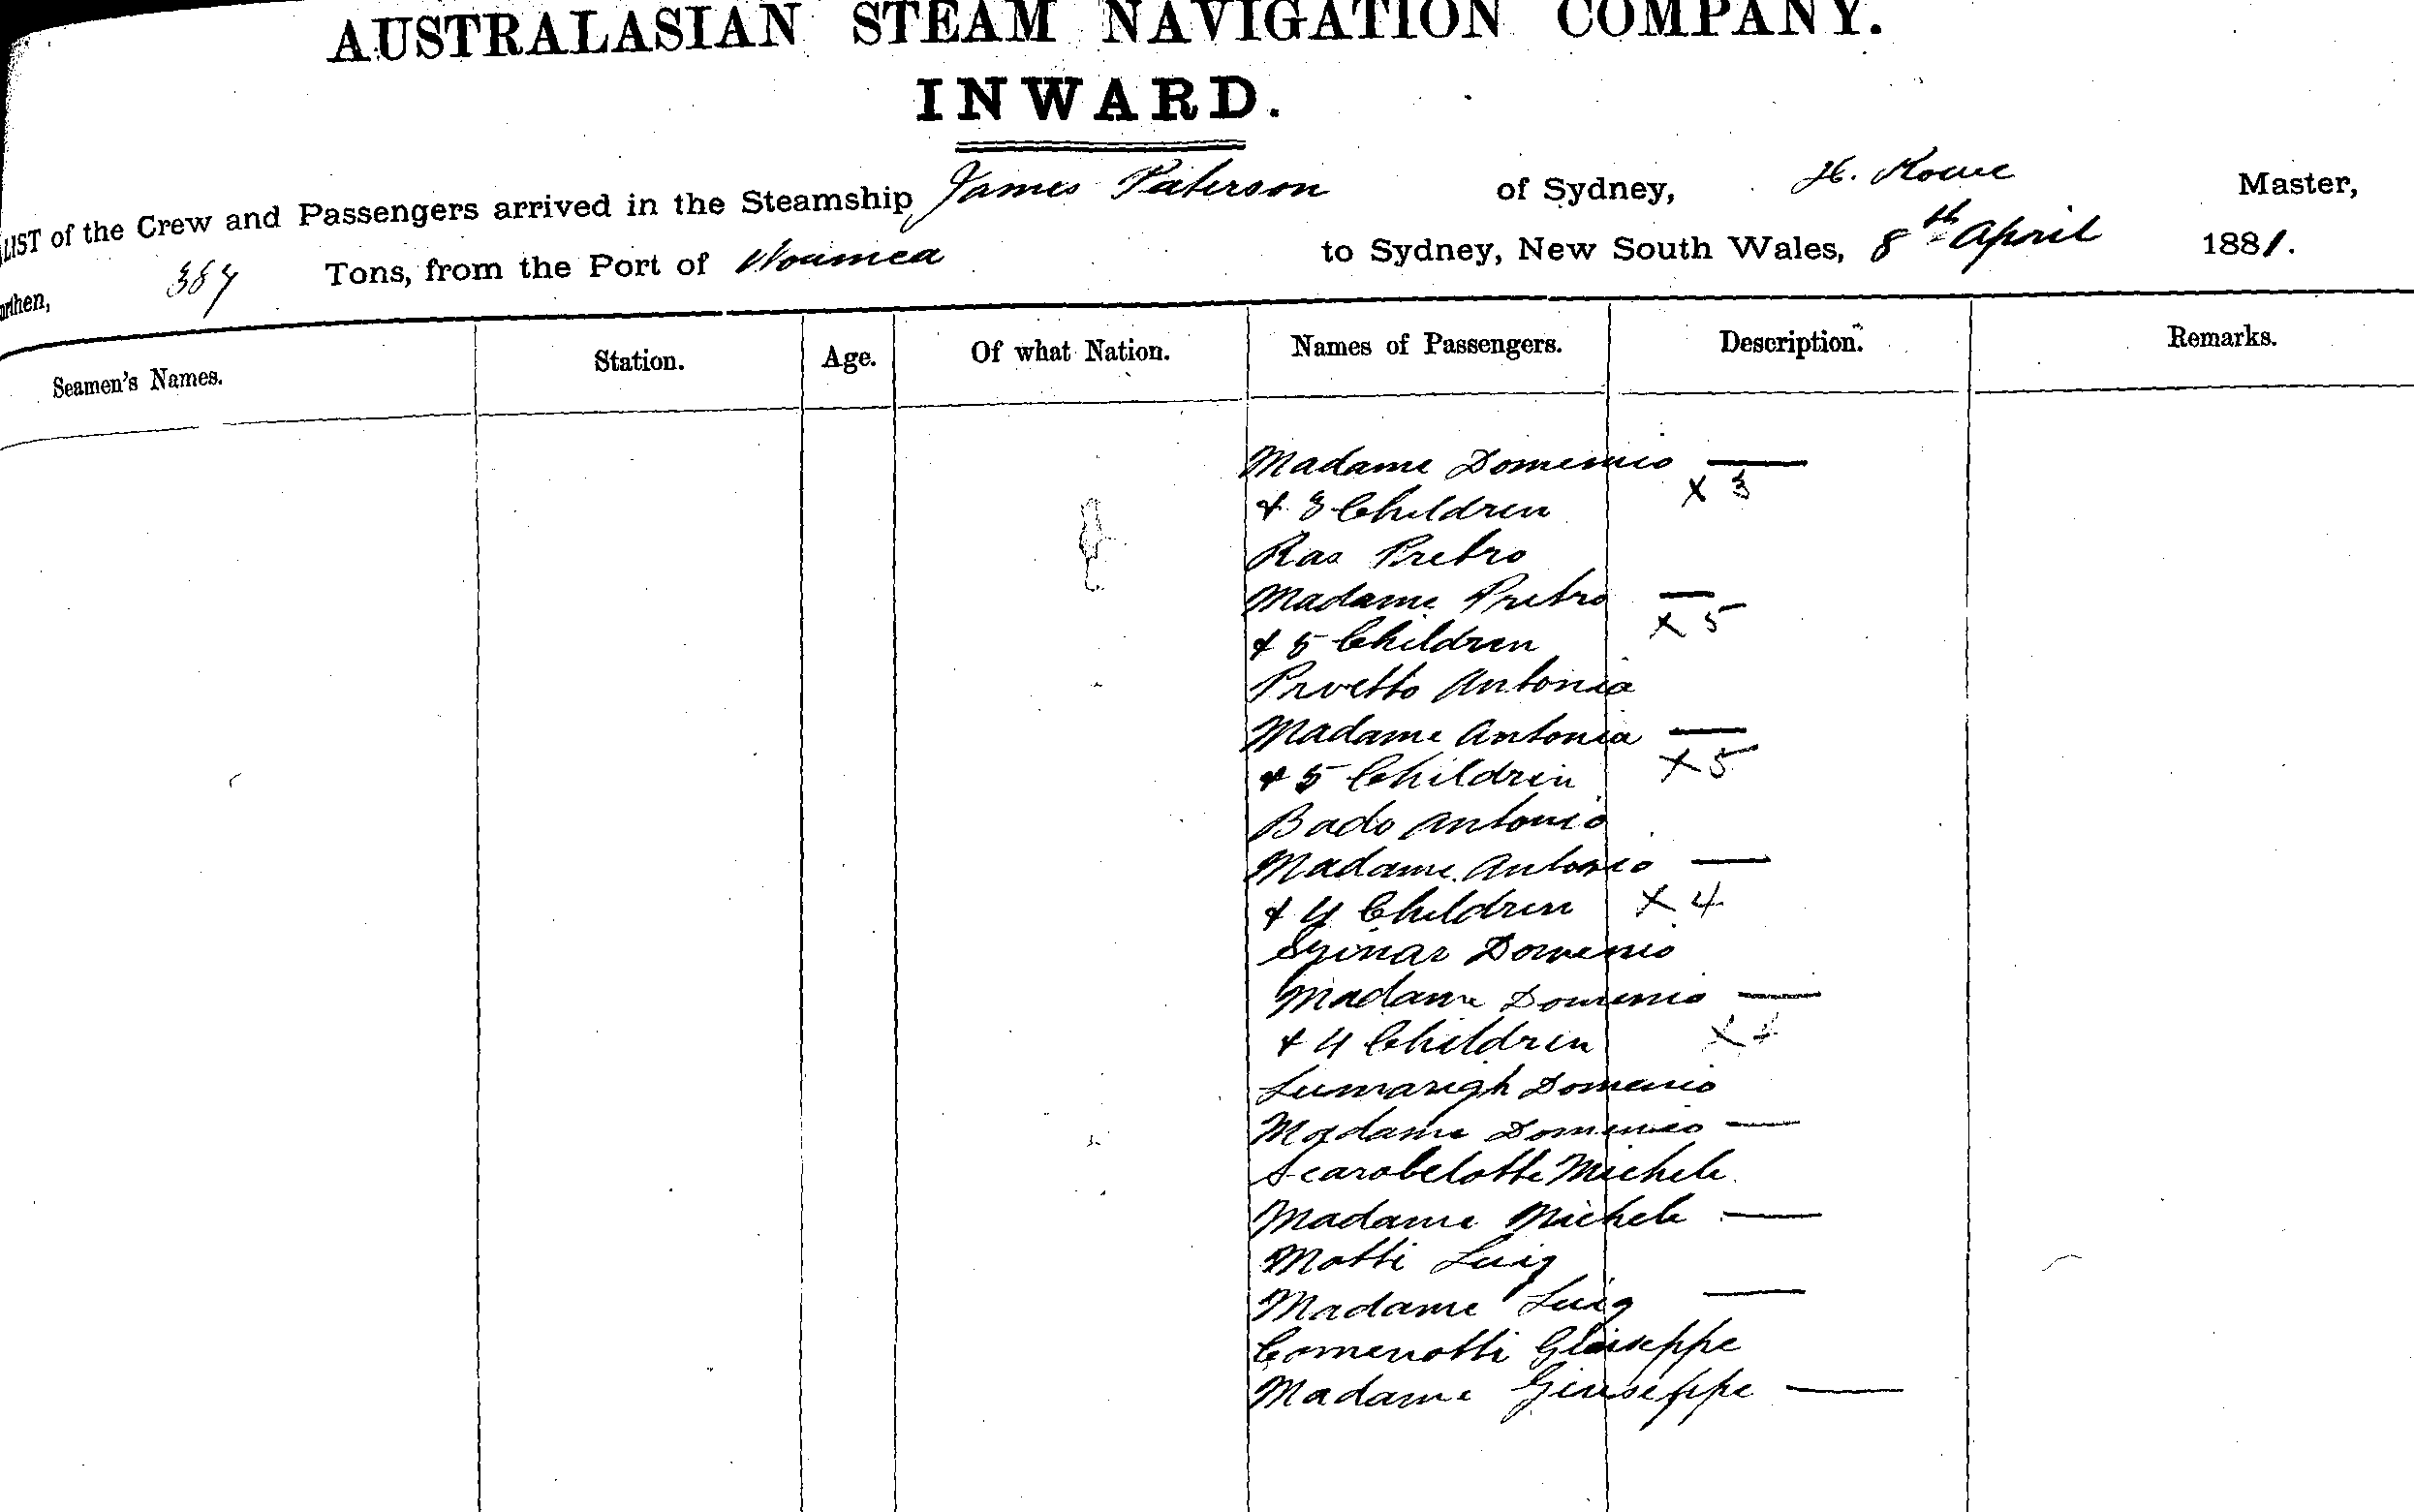 AUSTRALASIAN STEAM NAVIGATION COMPANY.
INWARD.
LIST of the Crew and Passengers arrived in the Steamship James Paterson of Sydney, H. Rowe Master,
Burthen, 387 Tons, from the Port of Noumea to Sydney, New South Wales, 8th April 1881.
Seamen's Names. Station. Age. Of what Nation. Names of Passengers. Description. Remarks.
Madame Domenico —
& 3 Children x 3
Ras Pietro
Madame Pietro —
& 5 Children x 5
Antonia
Madame Antonia —
& 5 Children x 5
Bado Antonio
Madame Antonio —
& 4 Children x 4
Domenio
Madame Domenio —
& 4 Children x 4
Domenio
Madame Domenico —
Scarobelotte Michele
Madame Michele —
Motti Luig
Madame Luig —
Comenotti Giuseppe
Madame Giuseppe —